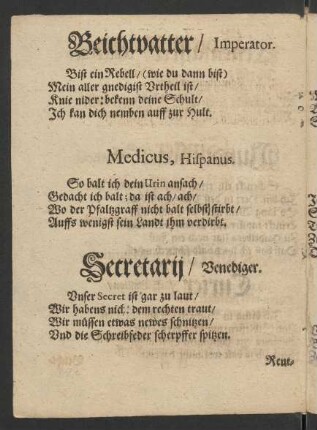 Beichtvatter / Imperator.
Bist ein Rebell / (wie du dann bist)
Mein aller gnedigist Vrtheil ist /
Knie nider: bekenn deine Schult /
Ich kan dich nemben auff zur Hult.
Medicus, Hispanus.
So balt ich dein Urin ansach /
Gedacht ich balt: da ist ach / ach /
Wo der Pfaltzgraff nicht balt selbst stirbt /
Auffs wenigst sein Landt ihm verdirbt.
Secretarij / Venediger.
Vnser Secret ist gar zu laut /
Wir habens nich: dem rechten traut /
Wir müssen etwas newes schnitzen /
Vnd die Schreibfeder scherpffer spitzen.
Rent-